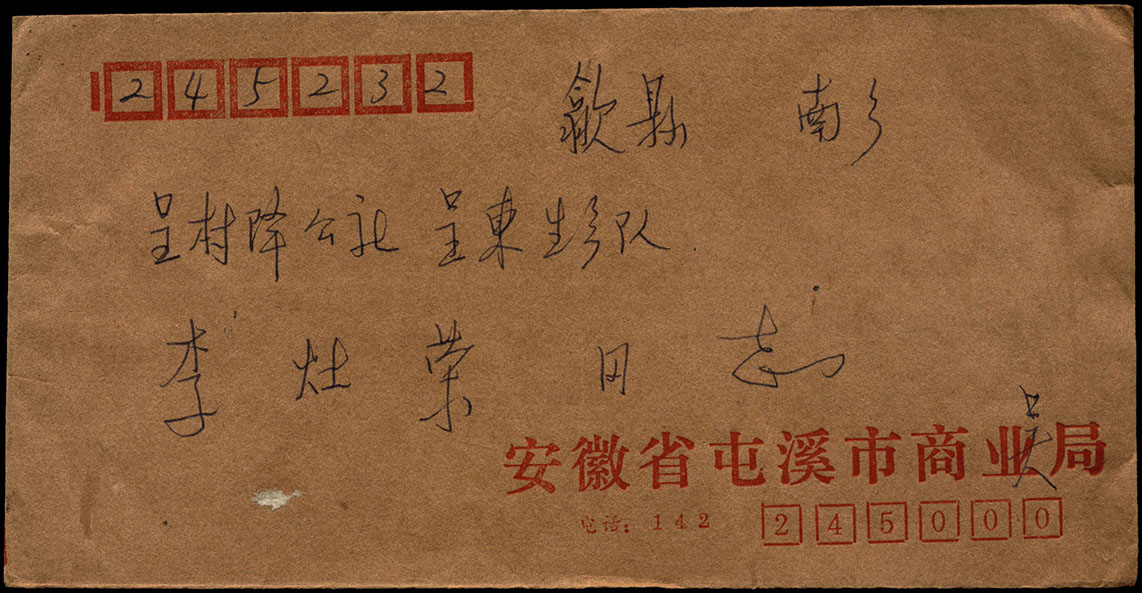 245232
歙县 南乡
呈村降公社 呈東生产队
李灶荣同志
吴
安徽省屯溪市商业局
电话:142 245000